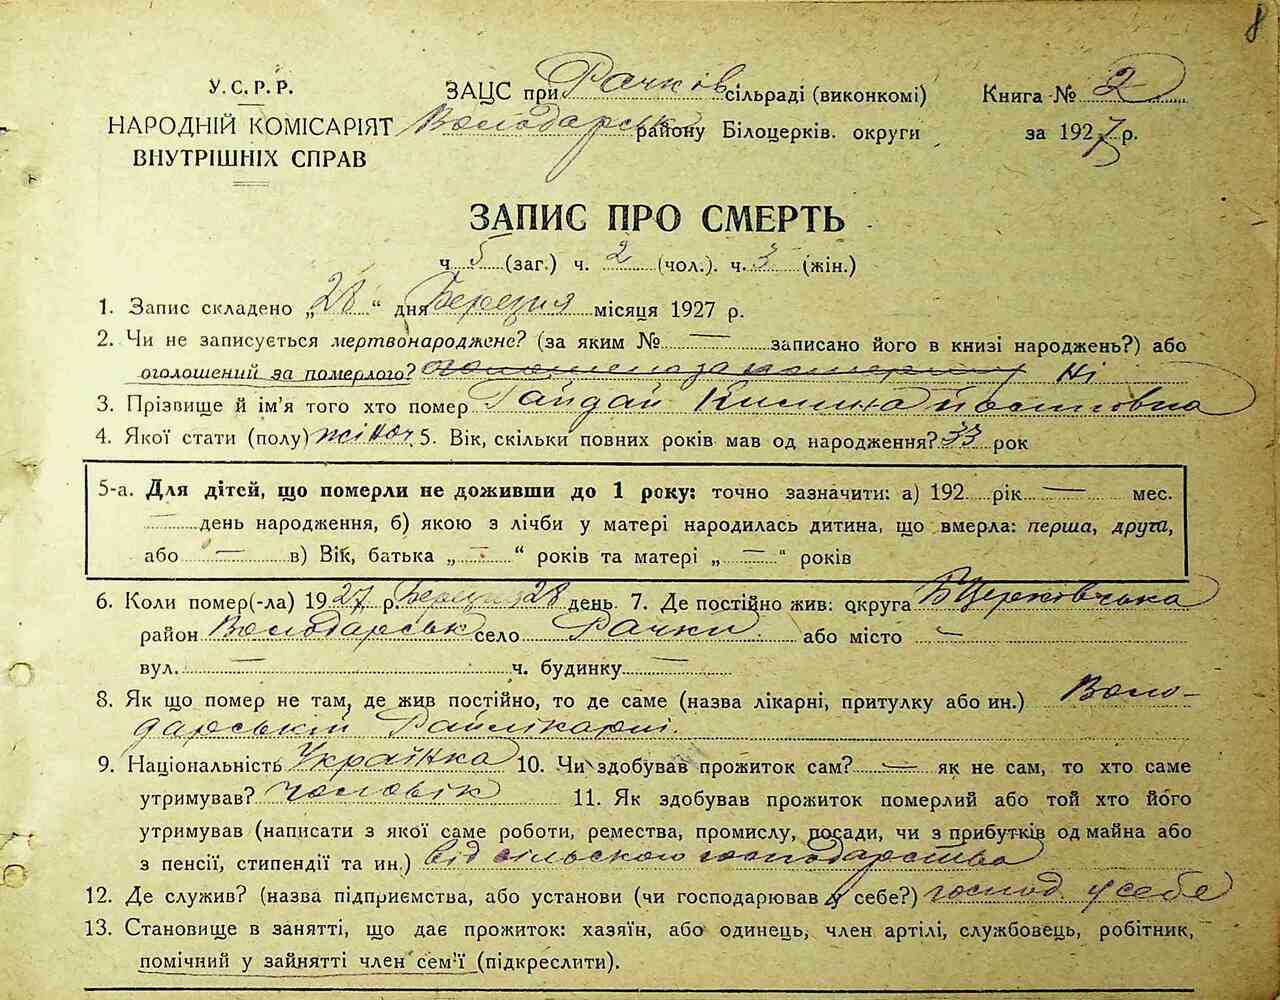 8
У.С.Р.Р.
НАРОДНІЙ КОМІСАРІЯТ
ВНУТРІШНІХ СПРАВ
ЗАЦС при Рачків сільраді (виконкомі)
Володарськ району Білоцерків. округи
Книга № 2
за 1927 р.
ЗАПИС ПРО СМЕРТЬ
ч 5 (заг.) ч. 2 (чол.). ч. 3 (жін.)
1. Запис складено „28“ дня Березня місяця 1927 р.
2. Чи не записується мертвонароджене? (за яким № — записано його в книзі народжень?) або
оголошений за померлого? Ні
3. Прізвище й ім'я того хто помер Гайдай Килина
4. Якої стати (полу) жіноч. 5. Вік, скільки повних років мав од народження? 33 рок
5-а. Для дітей, що померли не доживши до 1 року: точно зазначити: а) 192 рік — мес.
— день народження, б) якою з лічби у матері народилась дитина, що вмерла: перша, друга,
або — в) Вік, батька „—“ років та матері „—“ років
6. Коли помер(-ла) 1927 р. Березня 28 день. 7. Де постійно жив: округа БЦерковська
район Володарськ село Рачки. або місто —
вул. — ч. будинку —
8. Як що помер не там, де жив постійно, то де саме (назва лікарні, притулку або ин.) Воло-
дарській Райлікарні.
9. Національність Українка 10. Чи здобував прожиток сам? — як не сам, то хто саме
утримував? чоловік 11. Як здобував прожиток померлий або той хто його
утримував (написати з якої саме роботи, ремества, промислу, посади, чи з прибутків од майна або
з пенсії, стипендії та ин.) від сільського господарства
12. Де служив? (назва підприємства, або установи (чи господарював у себе?) господ. у себе
13. Становище в занятті, що дає прожиток: хазяїн, або одинець, член артілі, службовець, робітник,
помічний у зайнятті член сем'ї (підкреслити).